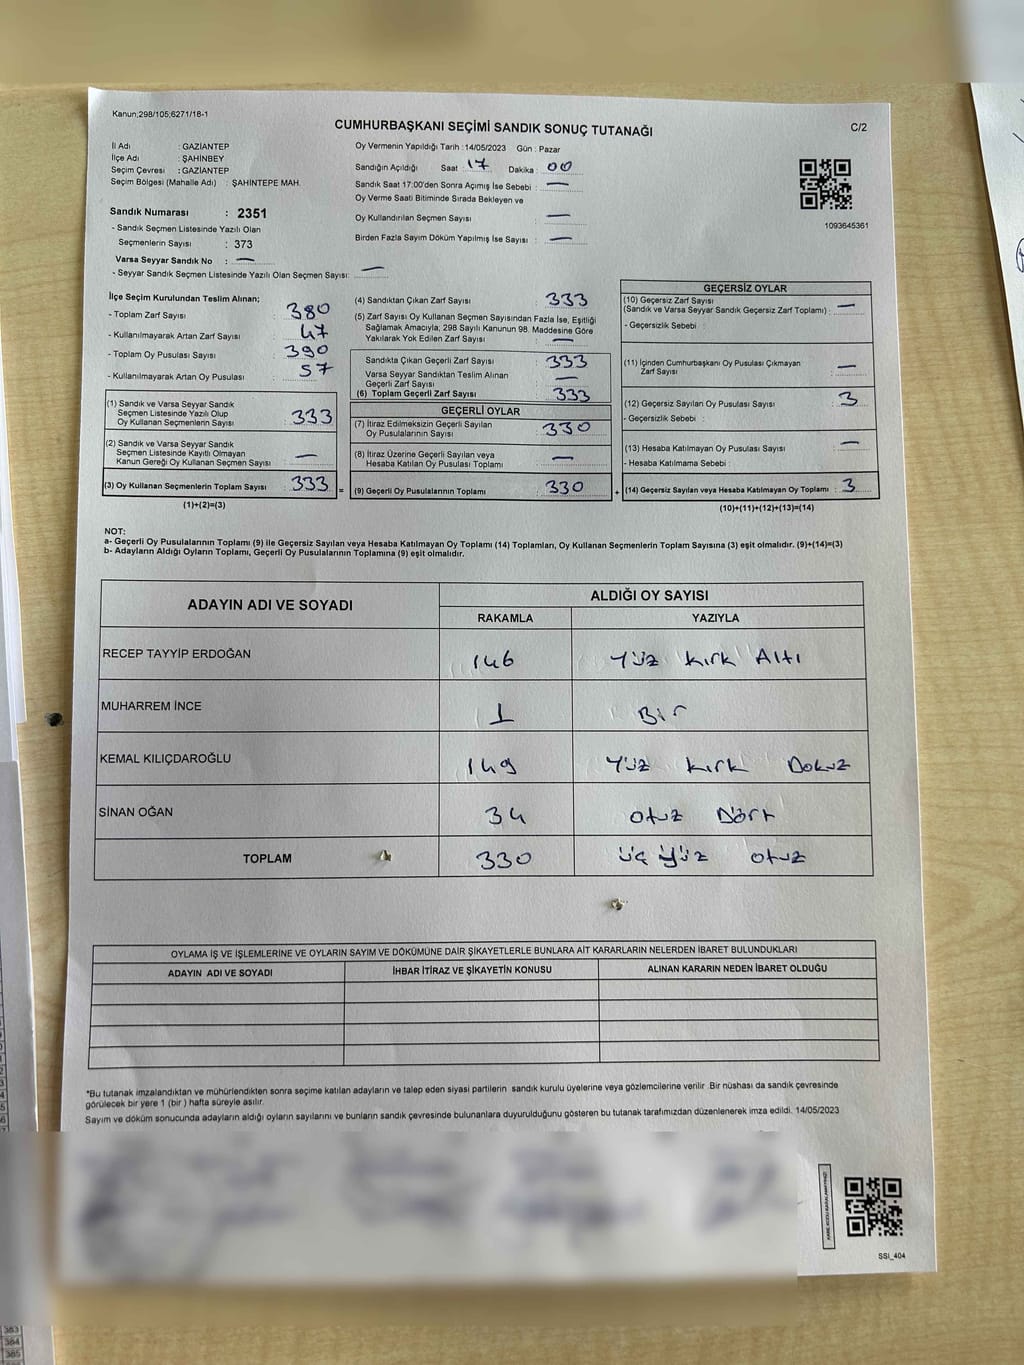 Kanun;298/105;6271/18-1
CUMHURBAŞKANI SEÇİMİ SANDIK SONUÇ TUTANAĞI
C/2
İl Adı : GAZİANTEP
İlçe Adı : ŞAHİNBEY
Seçim Çevresi : GAZİANTEP
Seçim Bölgesi (Mahalle Adı) : ŞAHİNTEPE MAH.
Sandık Numarası : 2351
- Sandık Seçmen Listesinde Yazılı Olan
Seçmenlerin Sayısı : 373
Varsa Seyyar Sandık No : —
- Seyyar Sandık Seçmen Listesinde Yazılı Olan Seçmen Sayısı: —
Oy Vermenin Yapıldığı Tarih : 14/05/2023 Gün : Pazar
Sandığın Açıldığı Saat : 17 Dakika : 00
Sandık Saat 17:00'den Sonra Açımış İse Sebebi : —
Oy Verme Saati Bitiminde Sırada Bekleyen ve
Oy Kullandırılan Seçmen Sayısı : —
Birden Fazla Sayım Döküm Yapılmış İse Sayısı : —
1093645361
İlçe Seçim Kurulundan Teslim Alınan;
- Toplam Zarf Sayısı : 380
- Kullanılmayarak Artan Zarf Sayısı : 47
- Toplam Oy Pusulası Sayısı : 390
- Kullanılmayarak Artan Oy Pusulası : 57
(1) Sandık ve Varsa Seyyar Sandık
Seçmen Listesinde Yazılı Olup
Oy Kullanan Seçmenlerin Sayısı : 333
(2) Sandık ve Varsa Seyyar Sandık
Seçmen Listesinde Kayıtlı Olmayan
Kanun Gereği Oy Kullanan Seçmen Sayısı : —
(3) Oy Kullanan Seçmenlerin Toplam Sayısı : 333
(1)+(2)=(3)
(4) Sandıktan Çıkan Zarf Sayısı : 333
(5) Zarf Sayısı Oy Kullanan Seçmen Sayısından Fazla İse, Eşitliği
Sağlamak Amacıyla, 298 Sayılı Kanunun 98. Maddesine Göre
Yakılarak Yok Edilen Zarf Sayısı : —
Sandıkta Çıkan Geçerli Zarf Sayısı : 333
Varsa Seyyar Sandıktan Teslim Alınan
Geçerli Zarf Sayısı : —
(6) Toplam Geçerli Zarf Sayısı : 333
GEÇERLİ OYLAR
(7) İtiraz Edilmeksizin Geçerli Sayılan
Oy Pusulalarının Sayısı : 330
(8) İtiraz Üzerine Geçerli Sayılan veya
Hesaba Katılan Oy Pusulası Toplamı : —
= (9) Geçerli Oy Pusulalarının Toplamı : 330
GEÇERSİZ OYLAR
(10) Geçersiz Zarf Sayısı
(Sandık ve Varsa Seyyar Sandık Geçersiz Zarf Toplamı) : —
- Geçersizlik Sebebi :
(11) İçinden Cumhurbaşkanı Oy Pusulası Çıkmayan
Zarf Sayısı : —
(12) Geçersiz Sayılan Oy Pusulası Sayısı : 3
- Geçersizlik Sebebi :
(13) Hesaba Katılmayan Oy Pusulası Sayısı : —
- Hesaba Katılmama Sebebi :
+ (14) Geçersiz Sayılan veya Hesaba Katılmayan Oy Toplamı : 3
(10)+(11)+(12)+(13)=(14)
NOT:
a- Geçerli Oy Pusulalarının Toplamı (9) ile Geçersiz Sayılan veya Hesaba Katılmayan Oy Toplamı (14) Toplamları, Oy Kullanan Seçmenlerin Toplam Sayısına (3) eşit olmalıdır. (9)+(14)=(3)
b- Adayların Aldığı Oyların Toplamı, Geçerli Oy Pusulalarının Toplamına (9) eşit olmalıdır.
ADAYIN ADI VE SOYADI ALDIĞI OY SAYISI
RAKAMLA YAZIYLA
RECEP TAYYİP ERDOĞAN 146 Yüz kırk Altı
MUHARREM İNCE 1 Bir
KEMAL KILIÇDAROĞLU 149 Yüz kırk Dokuz
SİNAN OĞAN 34 Otuz Dört
TOPLAM 330 Üç Yüz otuz
OYLAMA İŞ VE İŞLEMLERİNE VE OYLARIN SAYIM VE DÖKÜMÜNE DAİR ŞİKAYETLERLE BUNLARA AİT KARARLARIN NELERDEN İBARET BULUNDUKLARI
ADAYIN ADI VE SOYADI İHBAR İTİRAZ VE ŞİKAYETİN KONUSU ALINAN KARARIN NEDEN İBARET OLDUĞU
*Bu tutanak imzalandıktan ve mühürlendikten sonra seçime katılan adayların ve talep eden siyasi partilerin sandık kurulu üyelerine veya gözlemcilerine verilir. Bir nüshası da sandık çevresinde
görülecek bir yere 1 (bir ) hafta süreyle asılır.
Sayım ve döküm sonucunda adayların aldığı oyların sayılarını ve bunların sandık çevresinde bulunanlara duyurulduğunu gösteren bu tutanak tarafımızdan düzenlenerek imza edildi. 14/05/2023
SSI_404
383
384
385